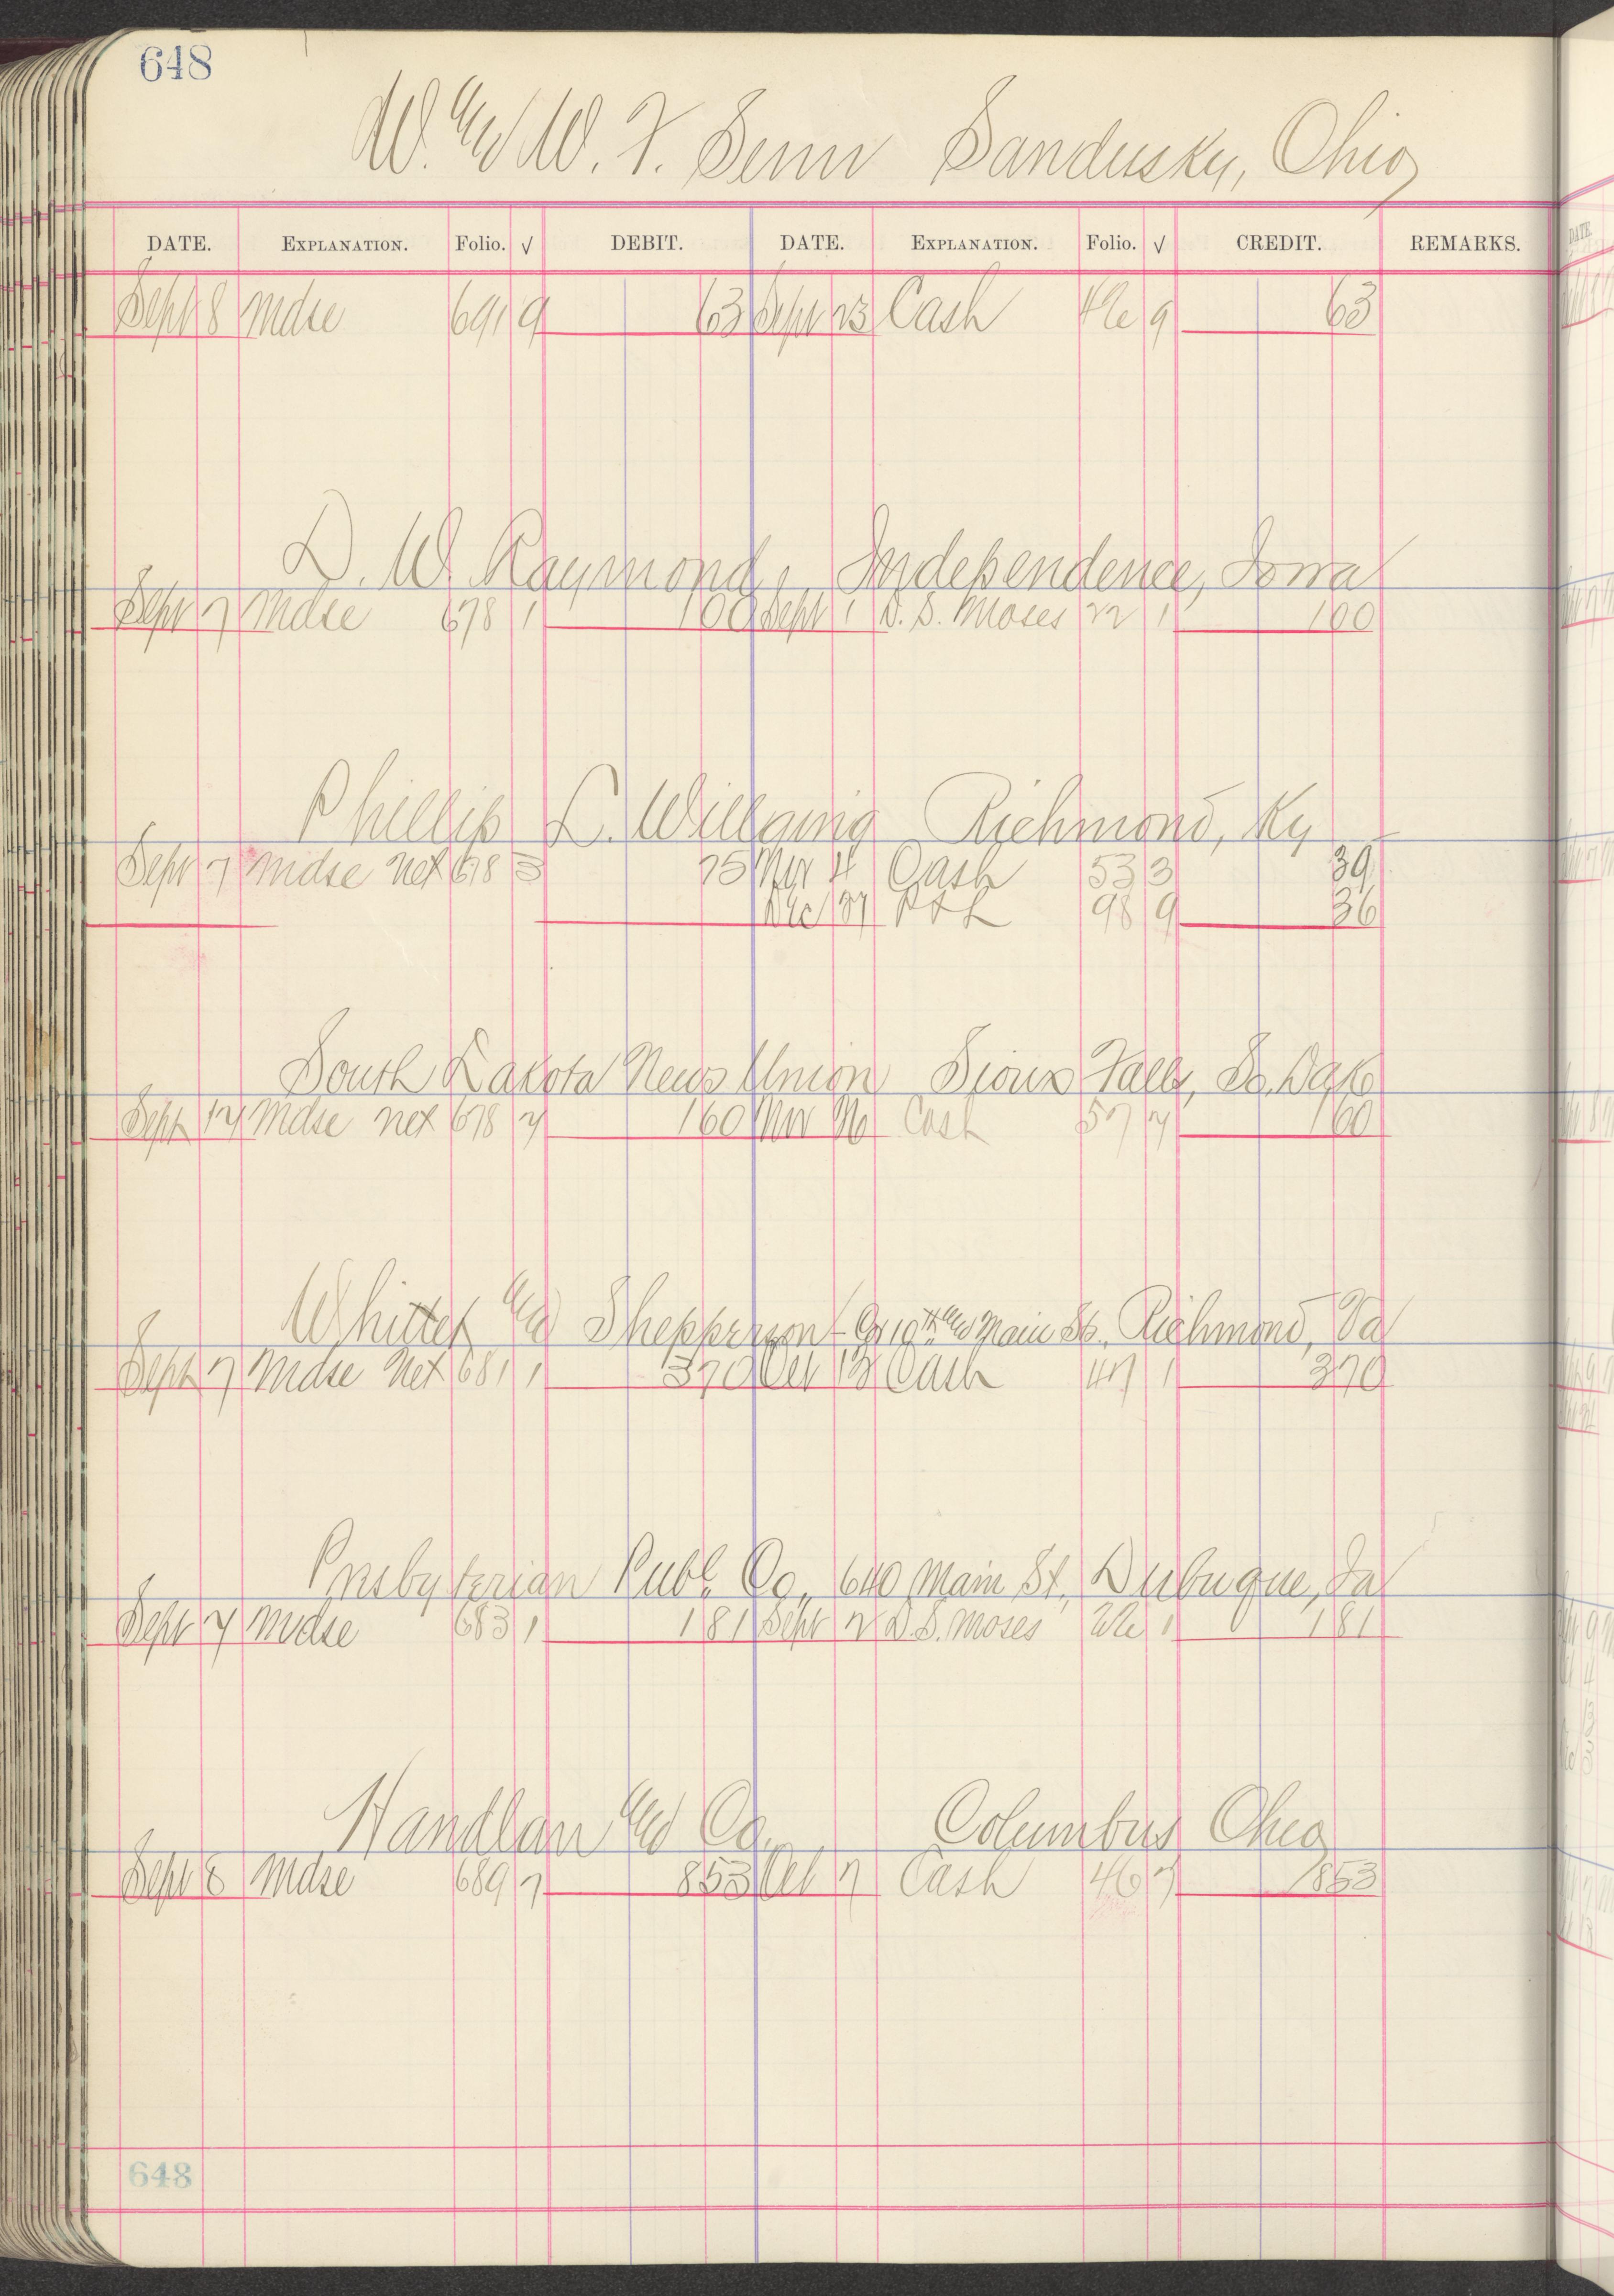 648
W. and W. F. Senn Sandusky, Ohio
DATE. EXPLANATION. Folio. √ DEBIT. DATE. EXPLANATION. Folio. √ CREDIT. REMARKS.
Sept 8 Mdse 691 9 63 Sept 23 Cash 9 63
D. W. Raymond, Independence, Iowa
Sept 7 Mdse 678 1 100 Sept 1 D. S. Moses 22 1 100
Phillip L. Willging Richmond, Ky
Sept 7 Mdse Net 678 3 75 Nov 4 Cash 53 3 39
Dec 37 P & L 98 9 36
South Dakota News Union Sioux Falls, So. Dak
Sept Mdse net 678 7 160 Nov Cash 57 7 160
Whittet and Shepperson Cor 10th and Main St. Richmond, Va
Sept 7 Mdse Net 681 1 370 Oct 13 Cash 47 1 370
Presbyterian Publ. Co. 640 Main St., Dubuque, Ia
Sept 7 Mdse 683 1 181 Sept D. S. Moses 1 181
Handlan and Co. Columbus Ohio
Sept 8 Mdse 689 7 853 Oct 7 Cash 46 7 853
648